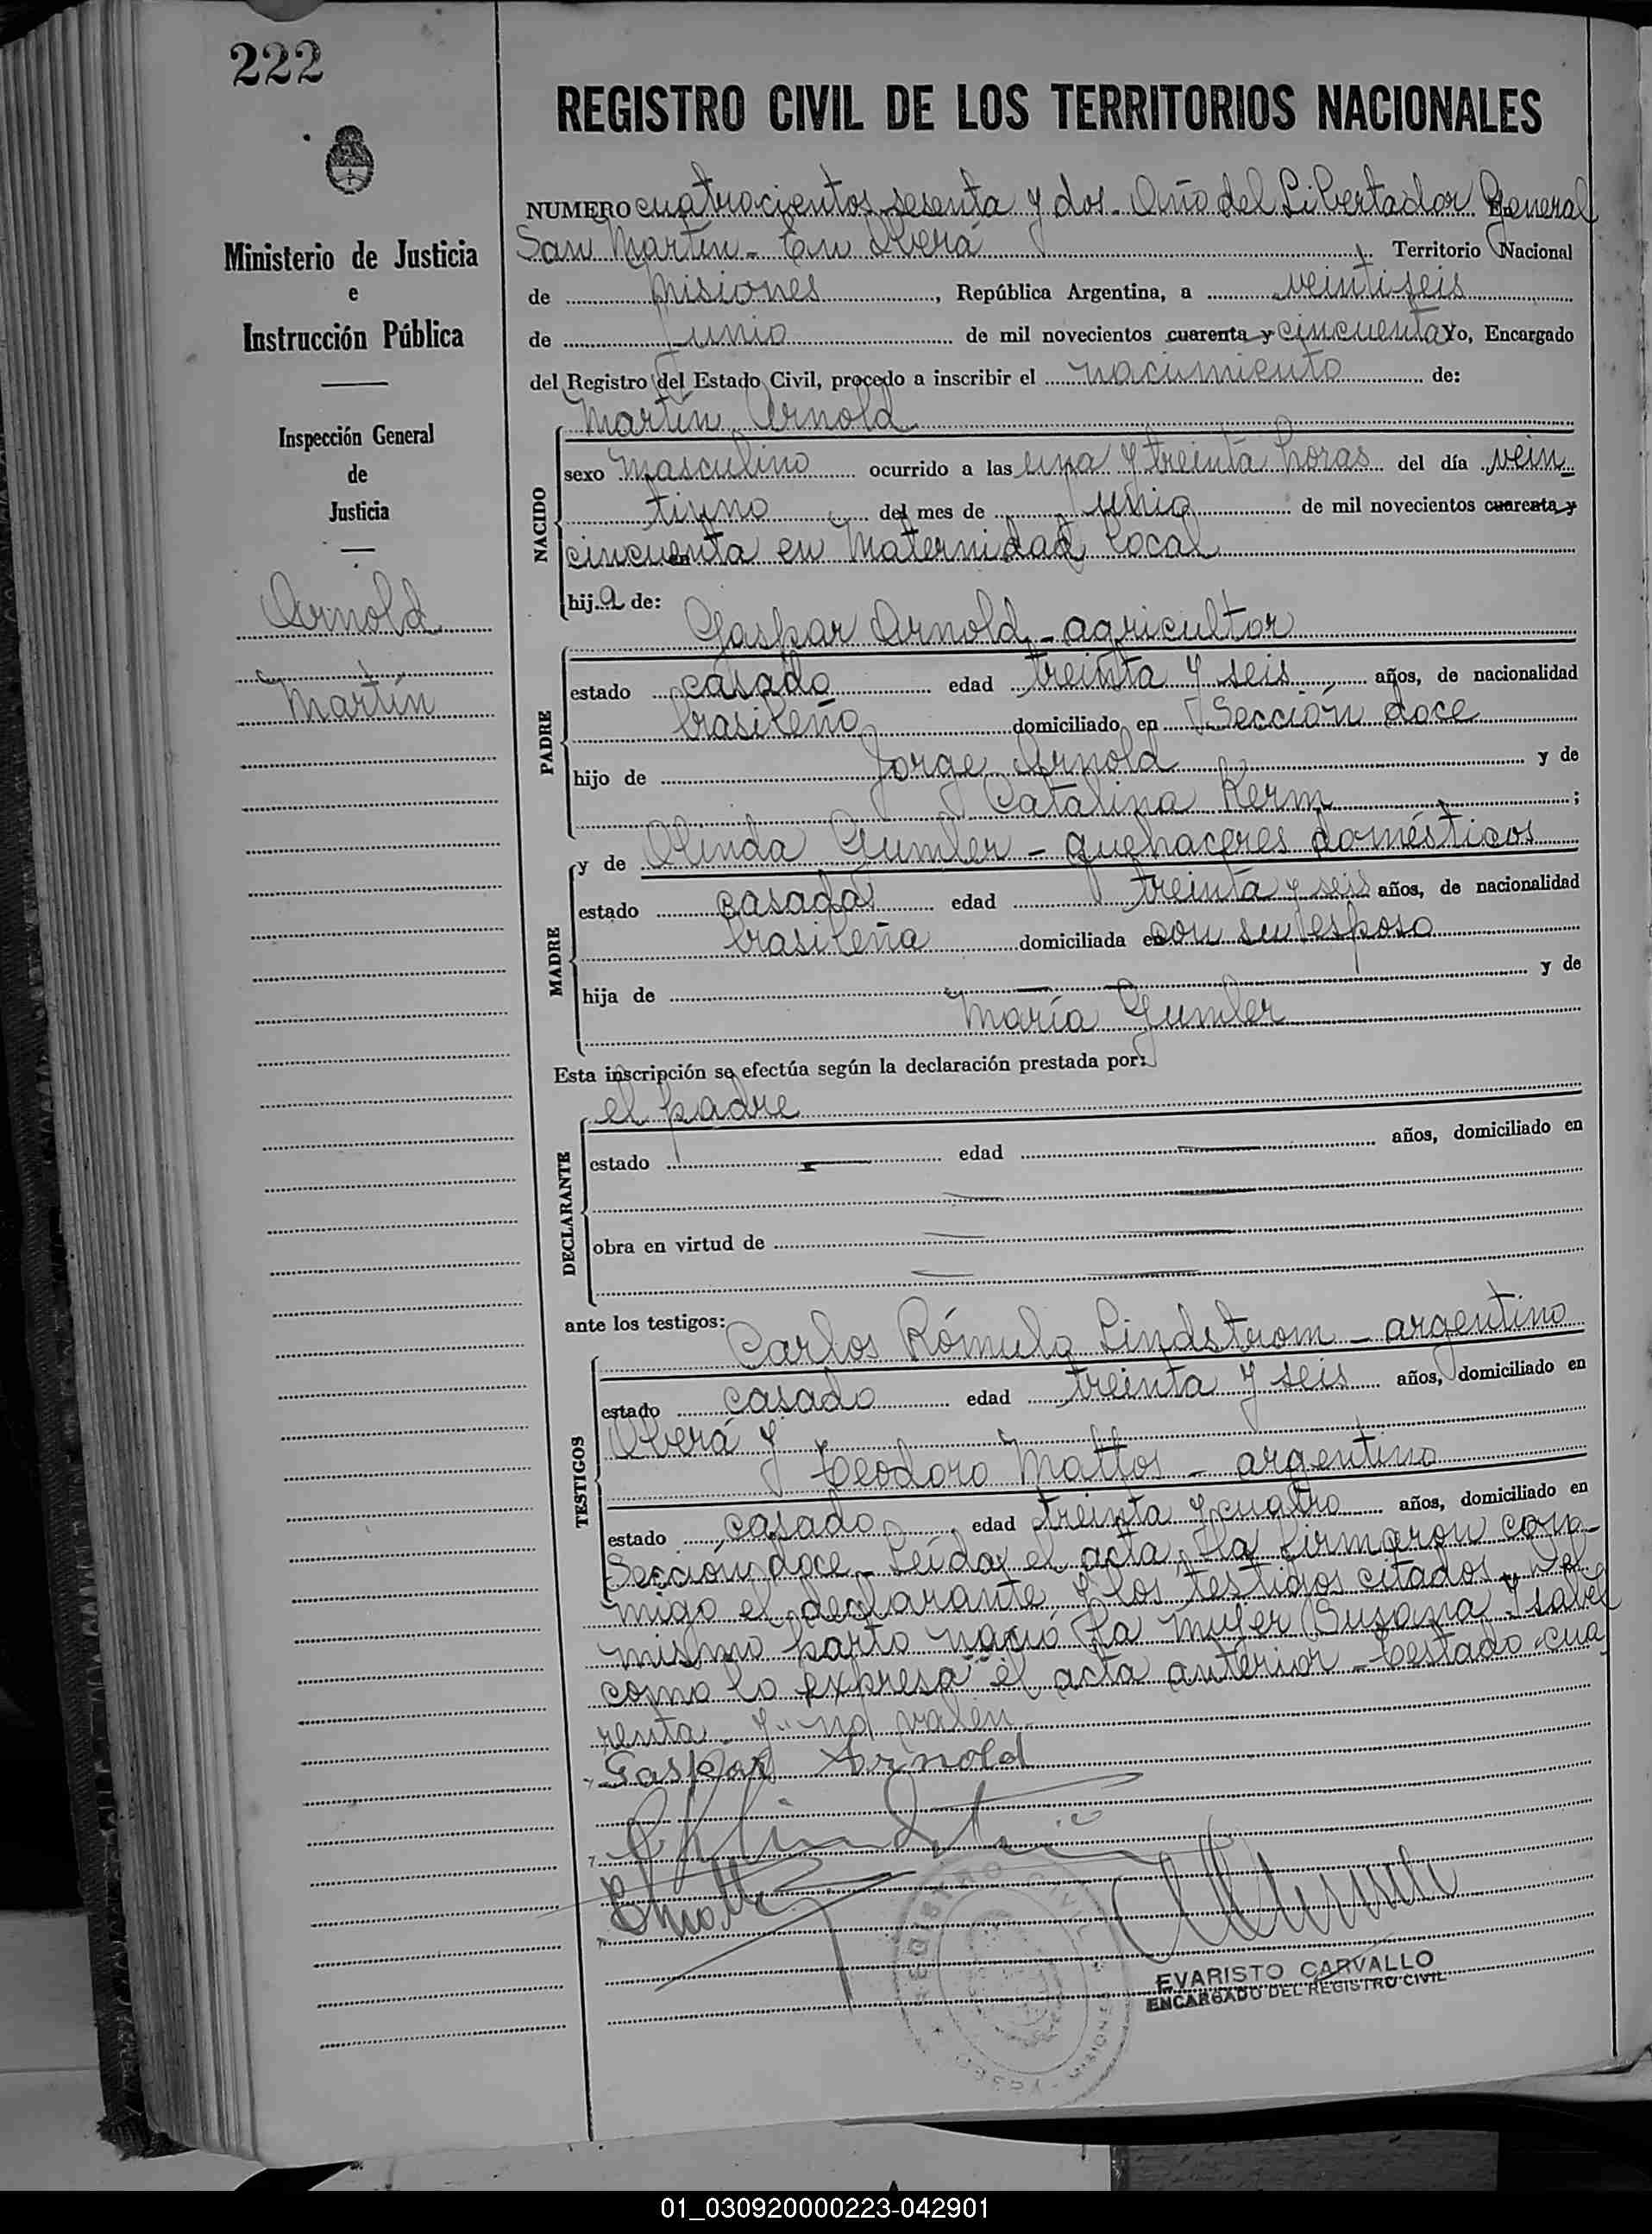 222
REGISTRO CIVIL DE LOS TERRITORIOS NACIONALES
Ministerio de Justicia
e
Instrucción Pública
Inspección General
de
Justicia
Arnold
Martín
NUMERO cuatrocientos sesenta y dos - Año del Libertador General
San Martín - En Oberá, Territorio Nacional
de Misiones, República Argentina, a veintiseis
de Junio de mil novecientos cuarenta y cincuenta Yo, Encargado
del Registro del Estado Civil, procedo a inscribir el nacimiento de:
NACIDO
Martín Arnold
sexo masculino ocurrido a las una y treinta horas del día vein
tiuno del mes de junio de mil novecientos cuarenta y
cincuenta en Maternidad local
hijo de:
PADRE
Gaspar Arnold - agricultor
estado casado edad treinta y seis años, de nacionalidad
brasileño domiciliado en Sección doce
hijo de Jorge Arnold y de
Catalina Kerm;
MADRE
y de Olinda Gumler - quehaceres domésticos
estado casada edad treinta y seis años, de nacionalidad
brasileña domiciliada en con su esposo
hija de — y de
María Gumler
Esta inscripción se efectúa según la declaración prestada por:
DECLARANTE
el padre
estado — edad — años, domiciliado en
obra en virtud de
ante los testigos:
TESTIGOS
Carlos Rómulo Lindstrom - argentino
estado casado edad treinta y seis años, domiciliado en
Oberá y
Teodoro Mattos - argentino
estado casado edad treinta y cuatro años, domiciliado en
Sección doce - Leída el acta, la firmaron con-
migo el declarante y los testigos citados, n el
mismo parto nació la mujer Susana Ysabel
como lo expresa el acta anterior - Testado - cua
renta - y - no valen
Gaspar Arnold
REGISTRO CIVIL
MISIONES
EVARISTO CARVALLO
ENCARGADO DEL REGISTRO CIVIL
01_030920000223-042901